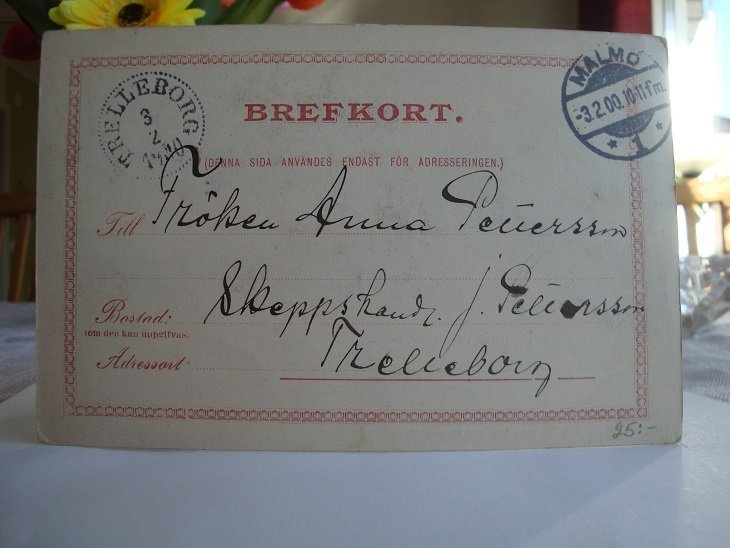 TRELLEBORG
3
2
1900
MALMÖ 1
-3.2.00.10-11 Fm.
BREFKORT.
(DENNA SIDA ANVÄNDES ENDAST FÖR ADRESSERINGEN.)
Till Fröken Anna Pettersson
Skeppshandl. J. Pettersson
Bostad:
(om den kan uppgifvas.
Adressort Trelleborg
25:-